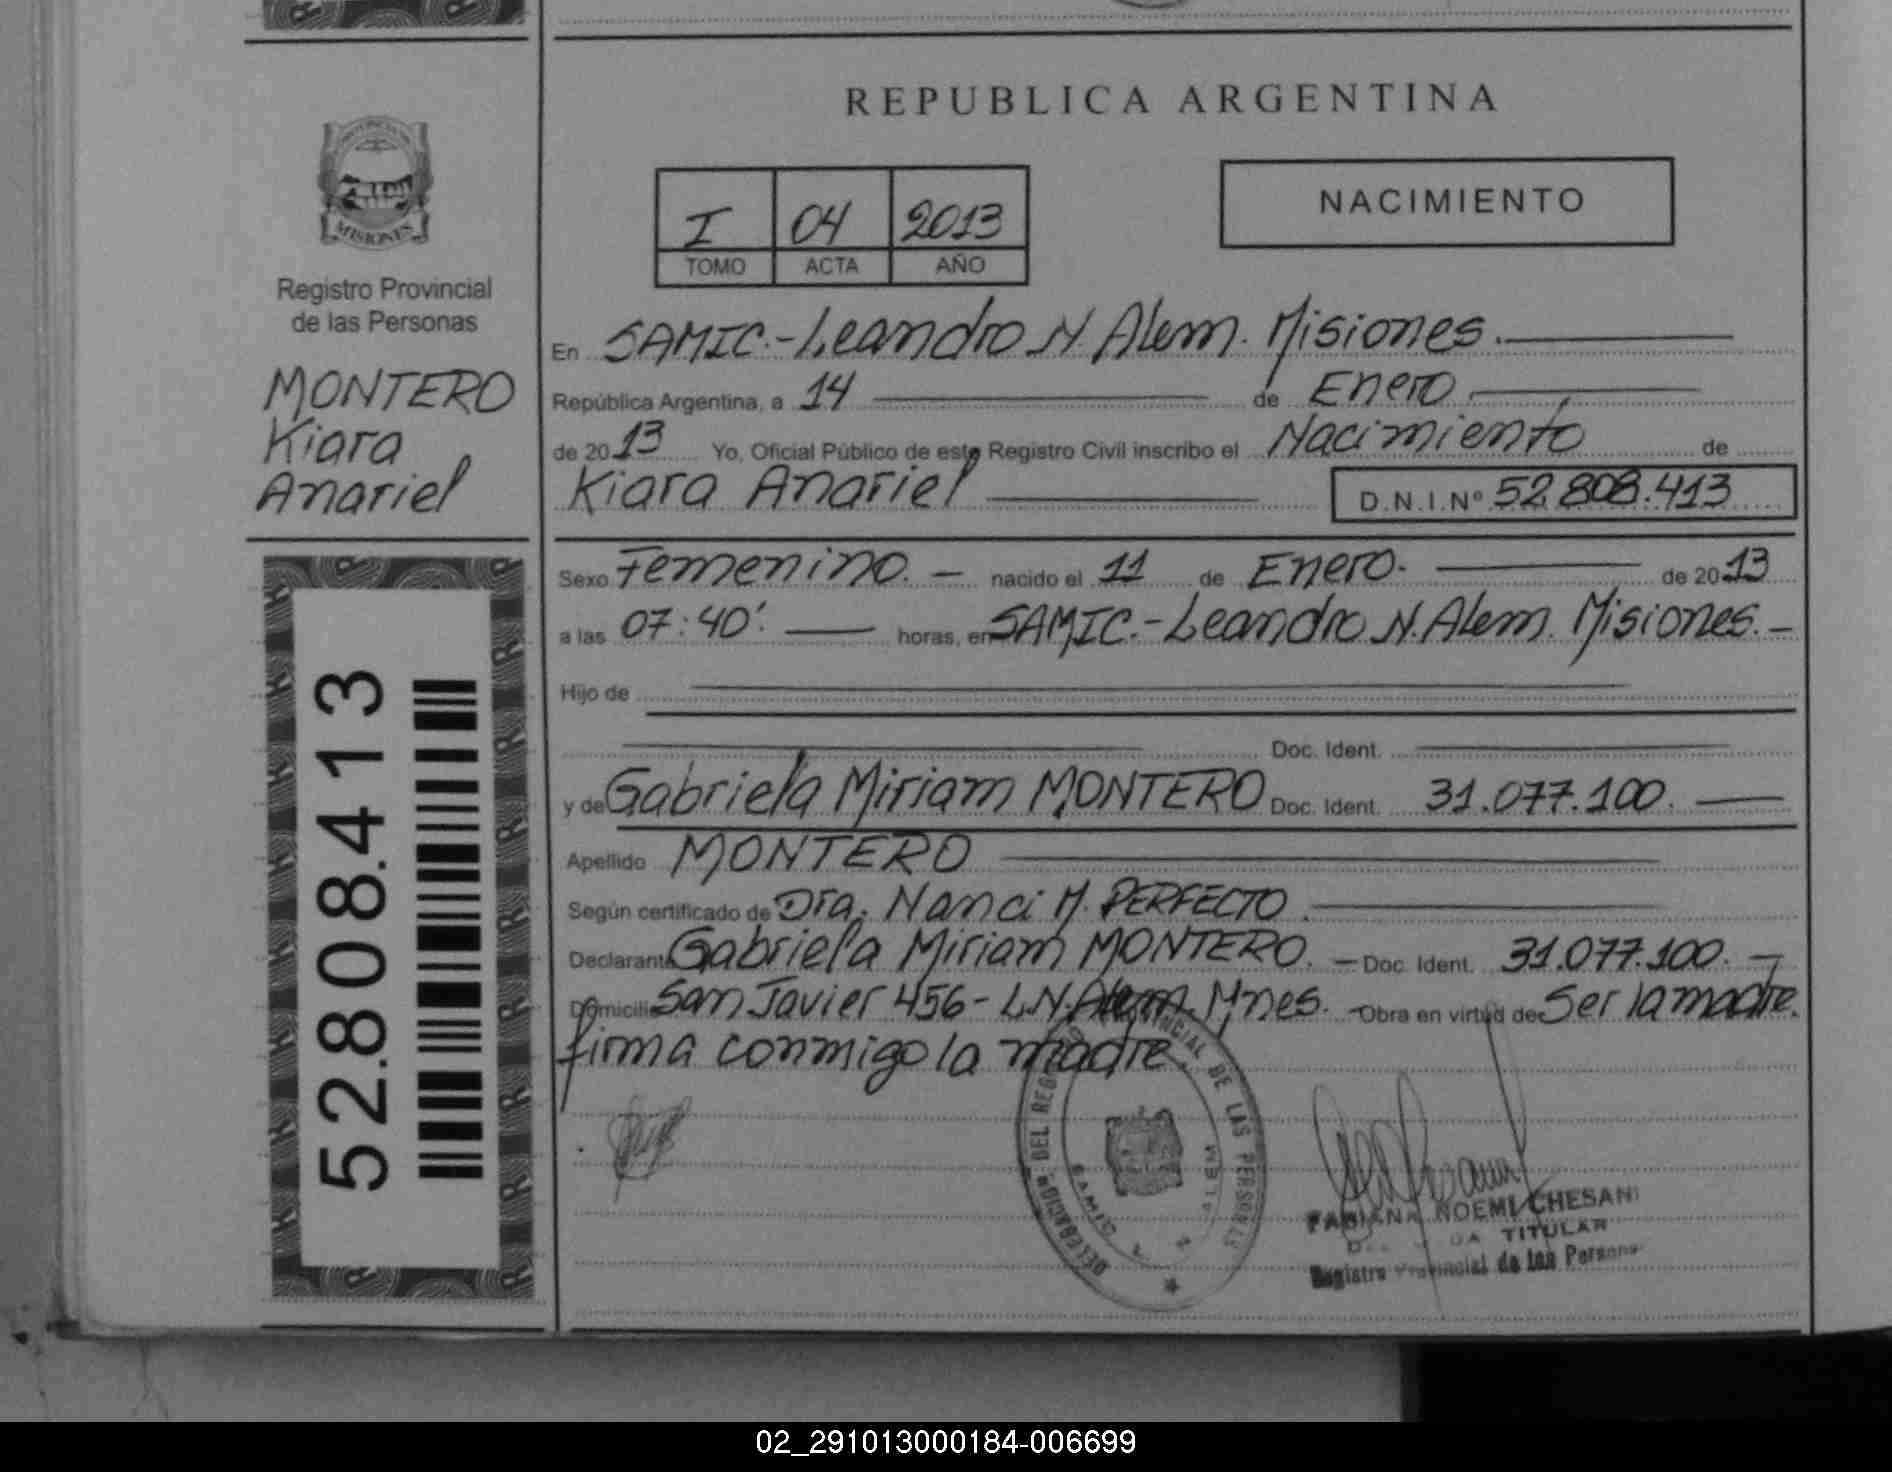 REPUBLICA ARGENTINA
MISIONES
Registro Provincial
de las Personas
MONTERO
Kiara
Anariel
52.808.413
I 04 2013
TOMO ACTA AÑO
NACIMIENTO
En SAMIC.-Leandro N. Alem. Misiones.
República Argentina, a 14 de Enero
de 2013 Yo, Oficial Público de este Registro Civil inscribo el Nacimiento de
Kiara Anariel D.N.I.Nº 52.808.413
Sexo Femenino. - nacido el 11 de Enero. de 2013
a las 07:40'. horas, en SAMIC.-Leandro N. Alem. Misiones. -
Hijo de
Doc. Ident.
y de Gabriela Miriam MONTERO Doc. Ident. 31.077.100.
Apellido MONTERO
Según certificado de Dra. Nanci M. PERFECTO.
Declarante Gabriela Miriam MONTERO. - Doc. Ident. 31.077.100. -
Domicilio San Javier 456 - L.N. Alem. Mnes. - Obra en virtud de Ser la madre.
firma conmigo la madre.
DELEGACION DEL REGISTRO PROVINCIAL DE LAS PERSONAS
SAMIC L N ALEM
FABIANA NOEMI CHESANI
TITULAR
Registro Provincial de las Personas
02_291013000184-006699